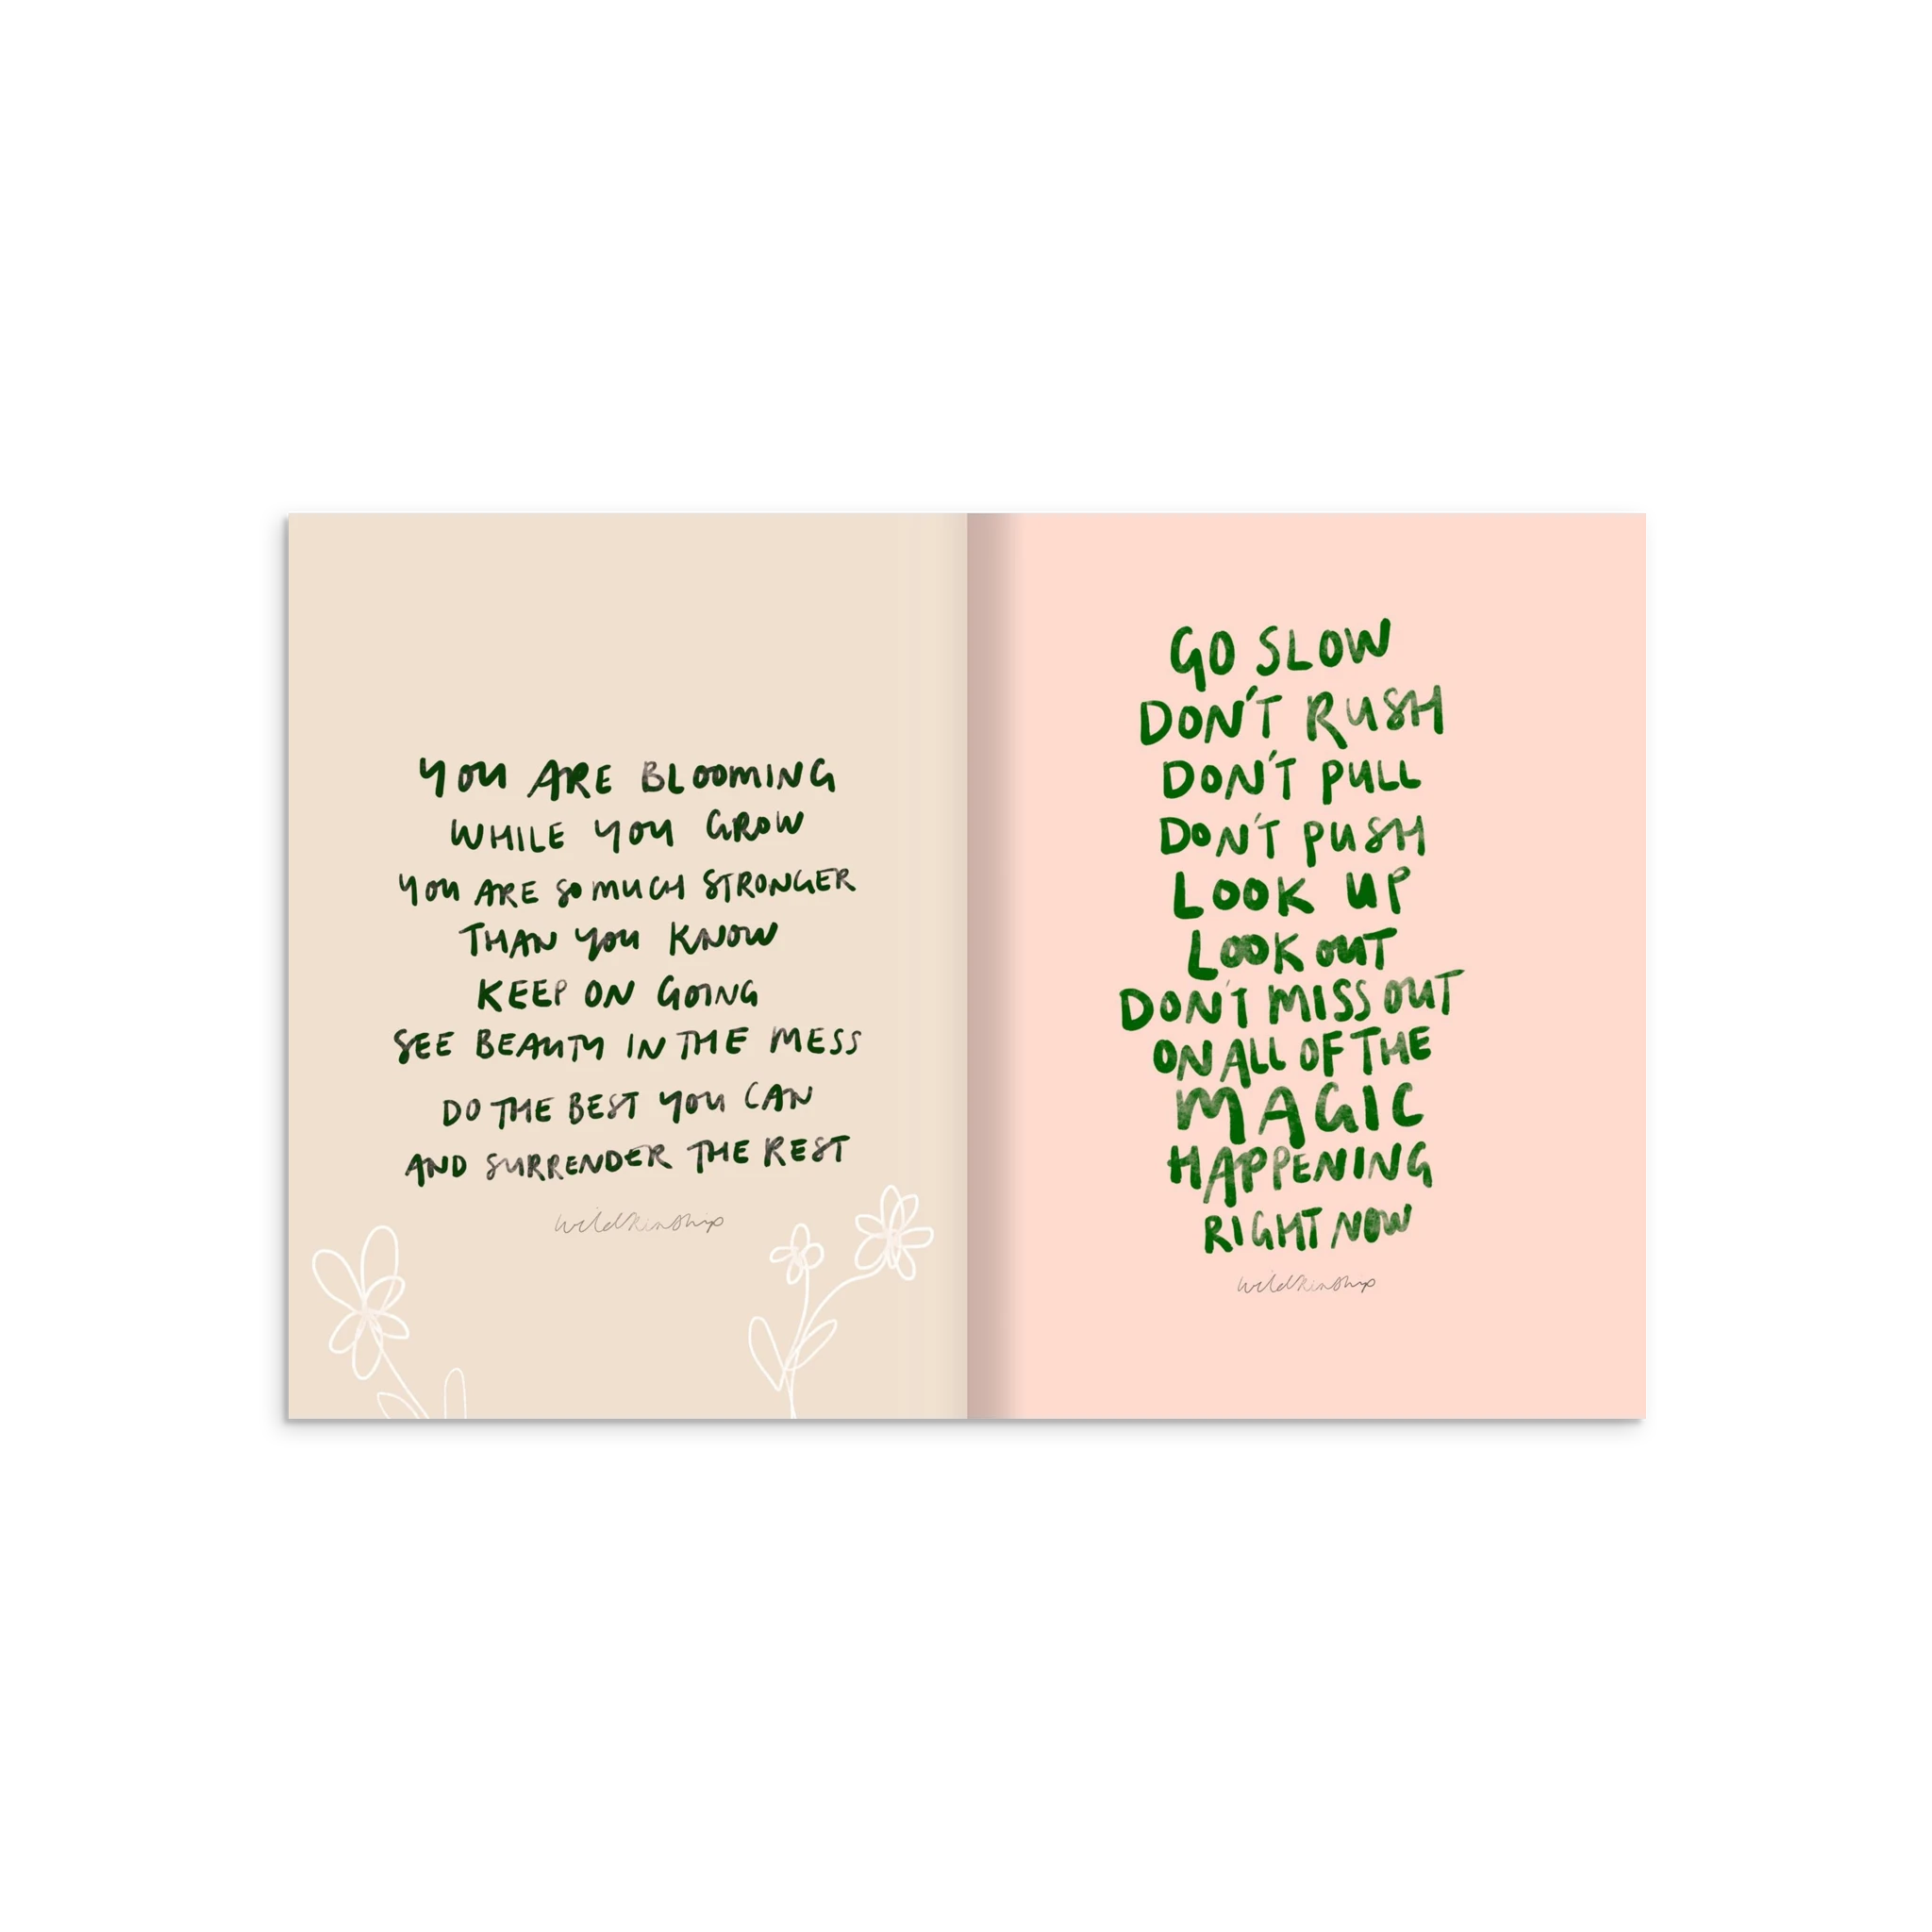 YOU ARE BLOOMING
WHILE YOU GROW
YOU ARE SO MUCH STRONGER
THAN YOU KNOW
KEEP ON GOING
SEE BEAUTY IN THE MESS
DO THE BEST YOU CAN
AND SURRENDER THE REST
wildkinship
GO SLOW
DON'T RUSH
DON'T PULL
DON'T PUSH
LOOK UP
LOOK OUT
DON'T MISS OUT
ON ALL OF THE
MAGIC
HAPPENING
RIGHT NOW
wildkinship